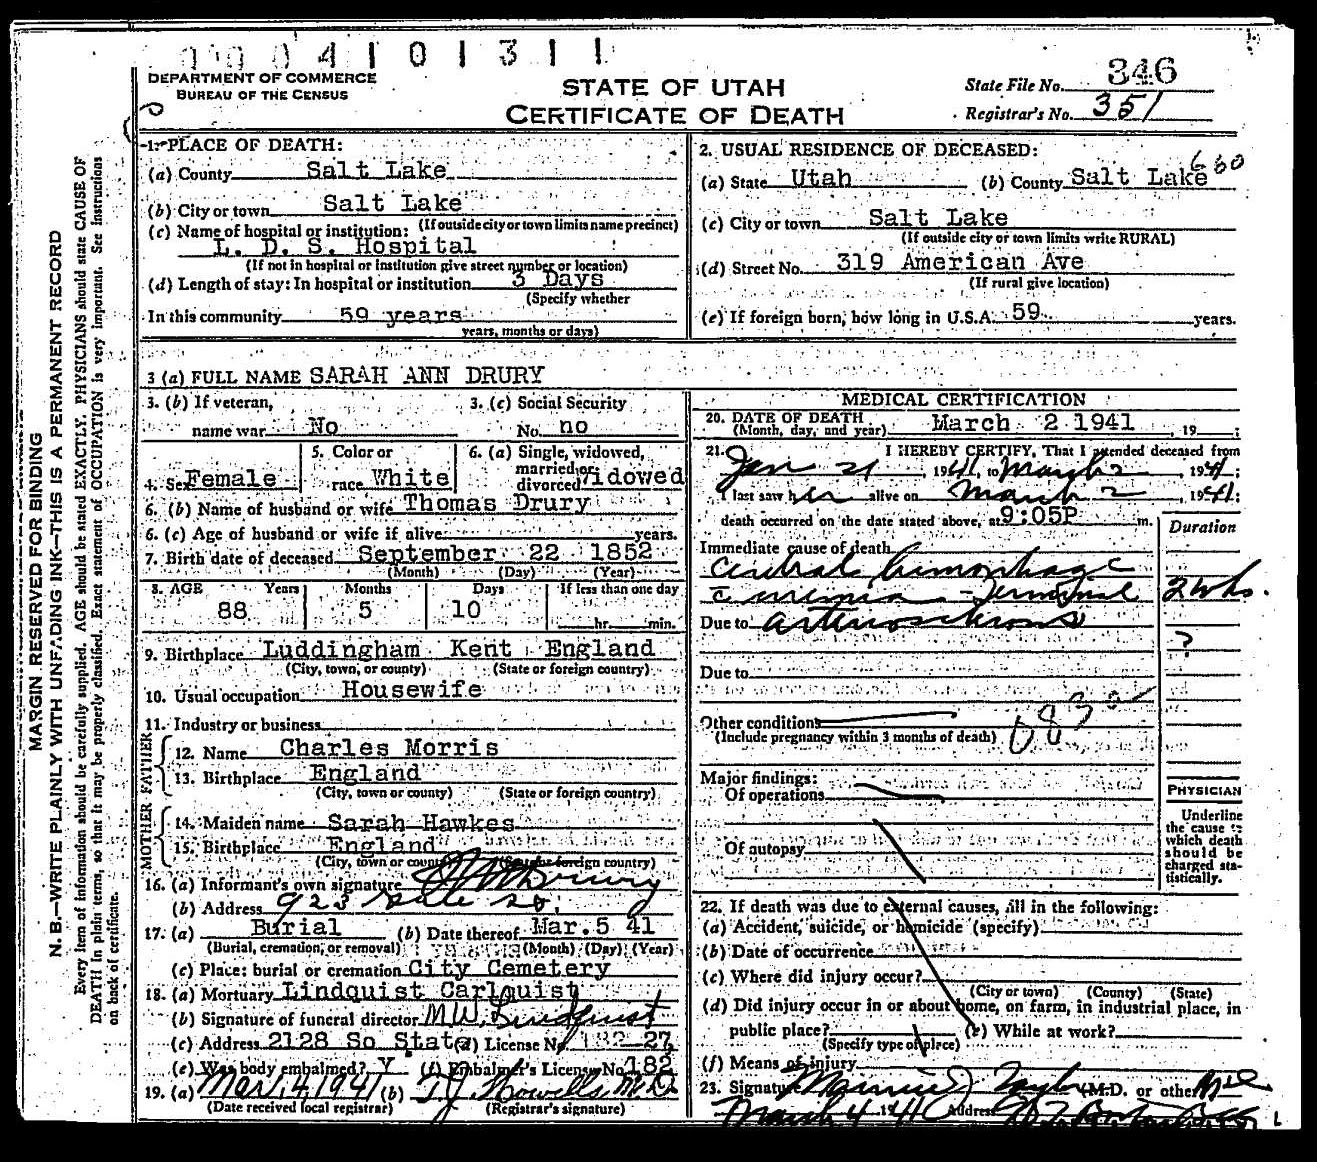 0004101311
DEPARTMENT OF COMMERCE
BUREAU OF THE CENSUS
STATE OF UTAH
CERTIFICATE OF DEATH
State File No. 346
Registrar's No. 351
MARGIN RESERVED FOR BINDING
N. B.—WRITE PLAINLY WITH UNFADING INK—THIS IS A PERMANENT RECORD
Every item of information should be carefully supplied. AGE should be stated EXACTLY. PHYSICIANS should state CAUSE OF
DEATH in plain terms, so that it may be properly classified. Exact statement of OCCUPATION is very important. See instructions
on back of certificate.
1. PLACE OF DEATH:
(a) County Salt Lake
(b) City or town Salt Lake
(If outside city or town limits name precinct)
(c) Name of hospital or institution:
L. D. S. Hospital
(If not in hospital or institution give street number or location)
(d) Length of stay: In hospital or institution 3 Days
(Specify whether
In this community 59 years
years, months or days)
2. USUAL RESIDENCE OF DECEASED:
630
(a) State Utah (b) County Salt Lake
(c) City or town Salt Lake
(If outside city or town limits write RURAL)
(d) Street No. 319 American Ave
(If rural give location)
(e) If foreign born, how long in U.S.A. 59 years.
3 (a) FULL NAME SARAH ANN DRURY
3. (b) If veteran,
name war No
3. (c) Social Security
No. no
4. Sex Female
5. Color or
race White
6. (a) Single, widowed,
married, or
divorced Widowed
6. (b) Name of husband or wife Thomas Drury
6. (c) Age of husband or wife if alive years.
7. Birth date of deceased September 22 1852
(Month) (Day) (Year)
8. AGE Years Months Days If less than one day
88 5 10 hr. min.
9. Birthplace Luddingham Kent England
(City, town, or county) (State or foreign country)
10. Usual occupation Housewife
11. Industry or business
FATHER
12. Name Charles Morris
13. Birthplace England
(City, town or county) (State or foreign country)
MOTHER
14. Maiden name Sarah Hawkes
15. Birthplace England
(City, town or county) (State or foreign country)
16. (a) Informant's own signature Drury
(b) Address 923 State So.
17. (a) Burial (b) Date thereof Mar. 5 41
(Burial, cremation, or removal) (Month) (Day) (Year)
(c) Place: burial or cremation City Cemetery
18. (a) Mortuary Lindquist Carlquist
(b) Signature of funeral director M.W. Lindquist
(c) Address 2128 So State (d) License No. 182-27
(e) Was body embalmed? Y (f) Embalmer's License No. 182
19. (a) Mar. 4, 1941 (b) T.J. Howells M.D.
(Date received local registrar) (Registrar's signature)
MEDICAL CERTIFICATION
20. DATE OF DEATH
(Month, day, and year) March 2 1941, 19 ;
21. I HEREBY CERTIFY, That I attended deceased from
Jan 21 1941, to March 2 1941;
I last saw her alive on March 2 1941;
death occurred on the date stated above, at 9:05P m.
Duration
Immediate cause of death
cerebral hemorrhage
c uremia - Terminal 2 wks.
Due to arteriosclerosis
?
Due to
Other conditions
(Include pregnancy within 3 months of death)
083
Major findings:
Of operations
Of autopsy
PHYSICIAN
Underline
the cause to
which death
should be
charged sta-
tistically.
22. If death was due to external causes, fill in the following:
(a) Accident, suicide, or homicide (specify)
(b) Date of occurrence
(c) Where did injury occur?
(City or town) (County) (State)
(d) Did injury occur in or about home, on farm, in industrial place, in
public place? (e) While at work?
(Specify type of place)
(f) Means of injury
23. Signature Taylor (M.D. or other) M.D.
March 4 1941 Address